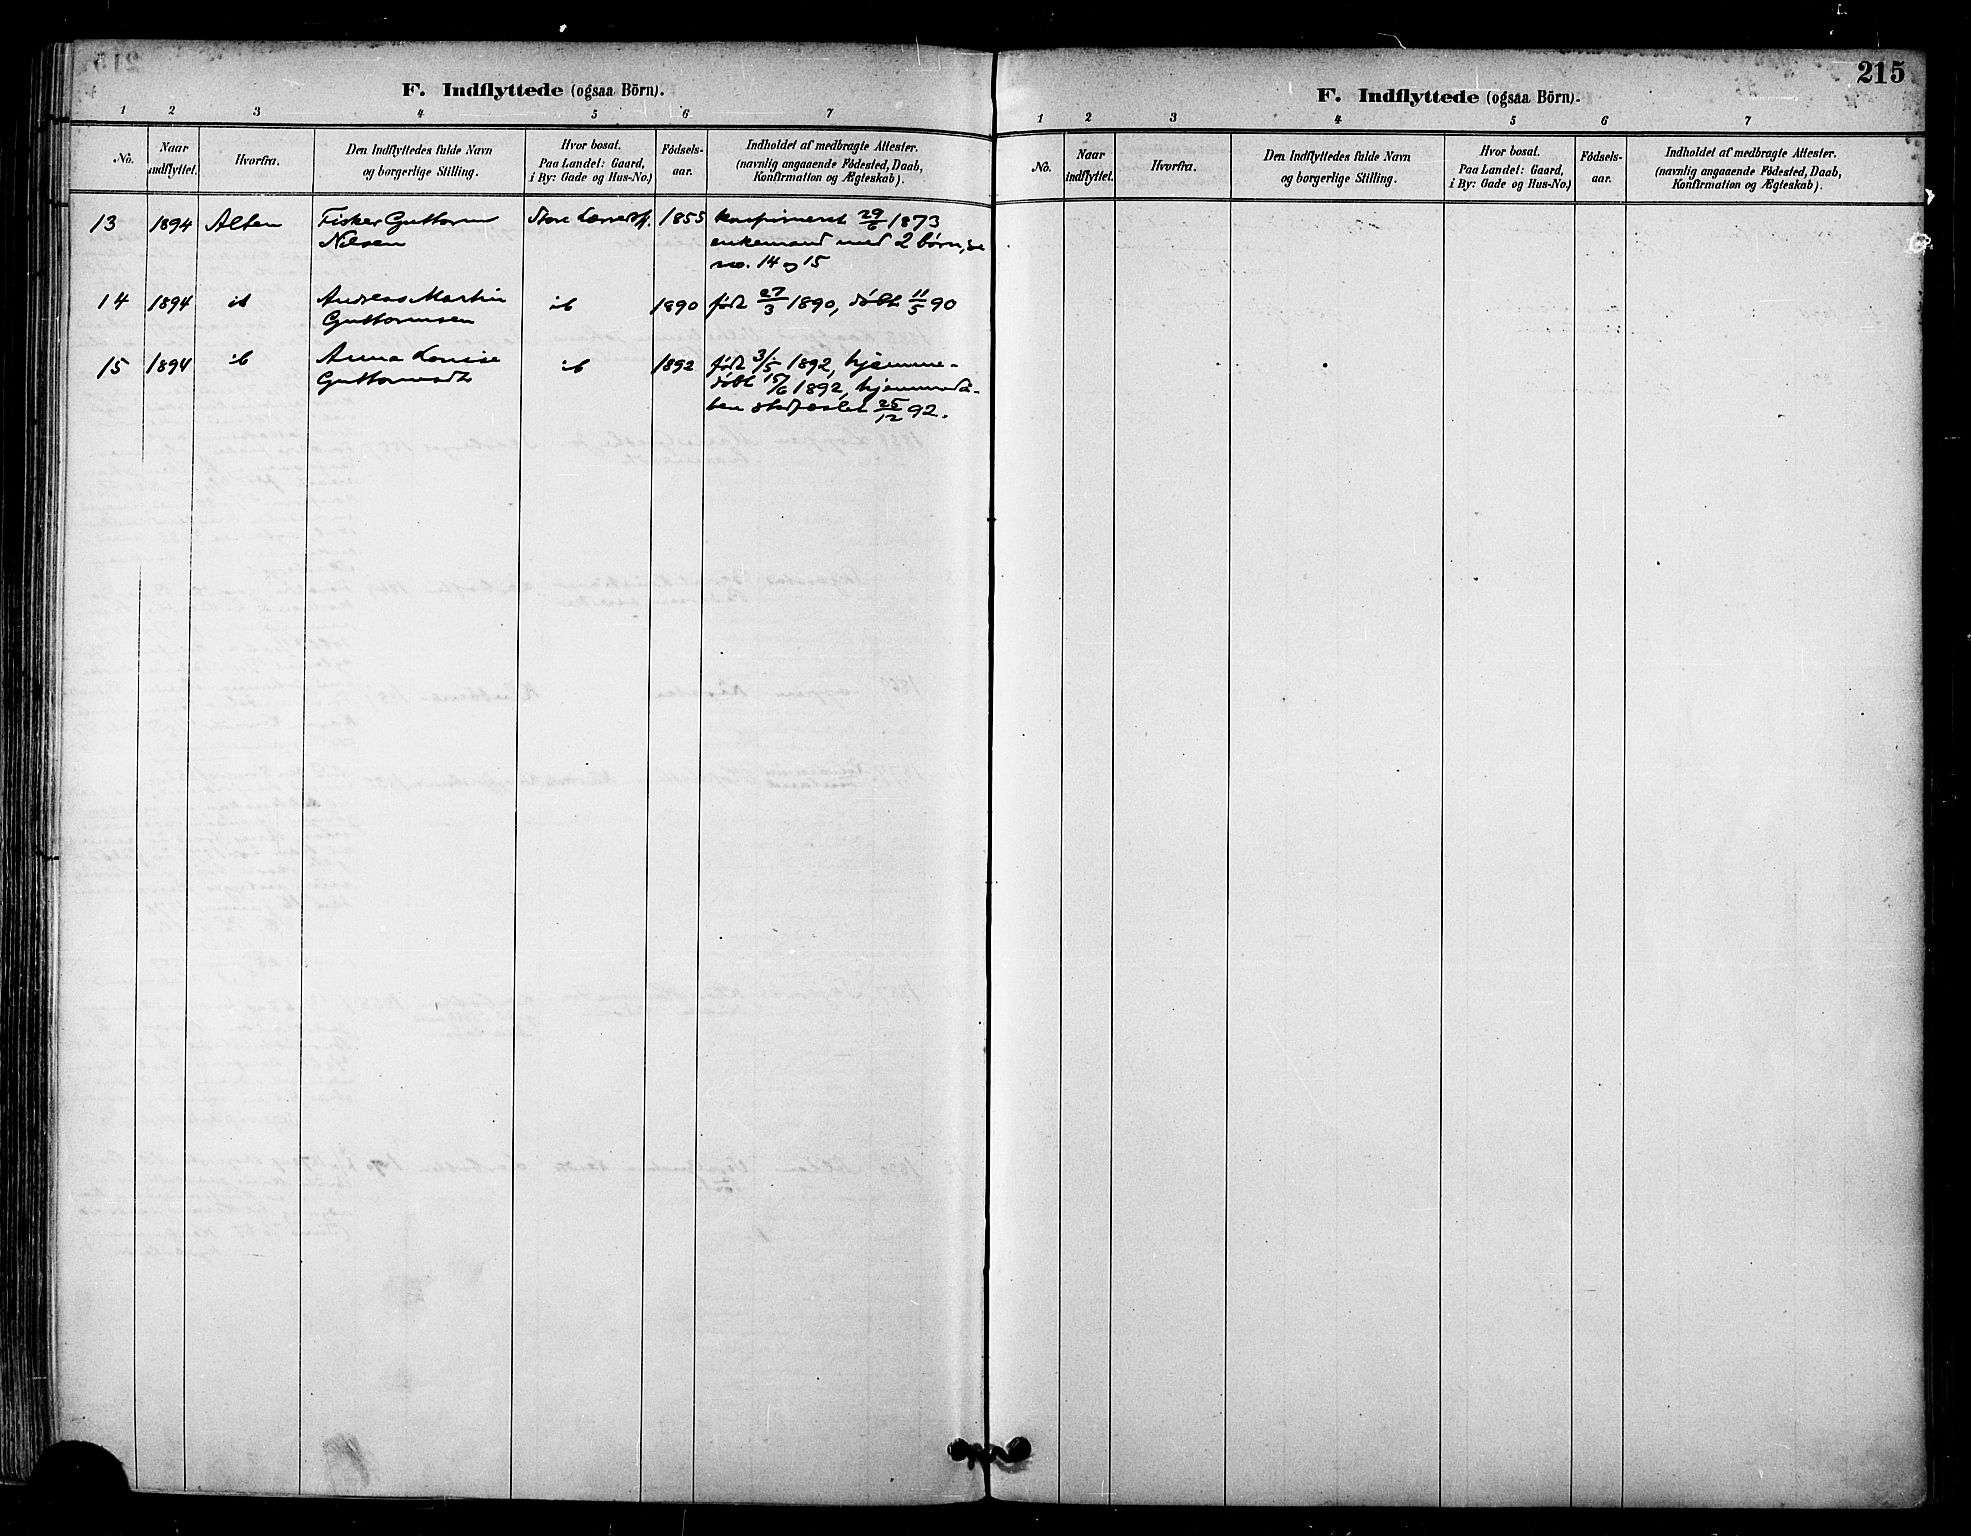 F. Indflyttede (ogsaa Börn).
1 2 3 4 5 6 7
No.
Naar indflyttet.
Hvorfra.
Den Indflyttedes fulde Navn
og borgerlige Stilling.
Hvor bosat.
Paa Landet: Gaard,
i By: Gade og Hus-No.)
Födsels-
aar.
Indholdet af medbragte Attester.
(navnlig angaaende Födested, Daab,
Konfirmation og Ægteskab).
13 1894 Alten Fisker Guttorm Store 1855 konfirmeret 29/6 1873
Nilsen enkemand med 2 børn, se
no. 14 og 15
14 1894 ib Andreas Martin ib 1890 født 27/3 1890, døbt 11/5 90
Guttormsen
15 1894 ib Anna Lovise ib 1892 født 3/5 1892, hjemme-
Guttormsdt døbt 15/6 1892, hjemmedå-
ben stadfæstet 25/12 92.
215
F. Indflyttede (ogsaa Börn).
1 2 3 4 5 6 7
No.
Naar
indflyttet.
Hvorfra.
Den Indflyttedes fulde Navn
og borgerlige Stilling.
Hvor bosat.
Paa Landet: Gaard,
i By: Gade og Hus-No.)
Födsels-
aar.
Indholdet af medbragte Attester.
(navnlig angaaende Födested, Daab,
Konfirmation og Ægteskab).